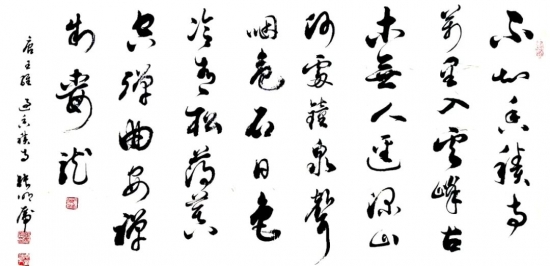 不知香積寺
數里入雲峰古
木無人逕深山
何處鐘泉聲
咽危石日色
冷青松薄暮
空潭曲安禪
制毒龍
唐王維過香積寺